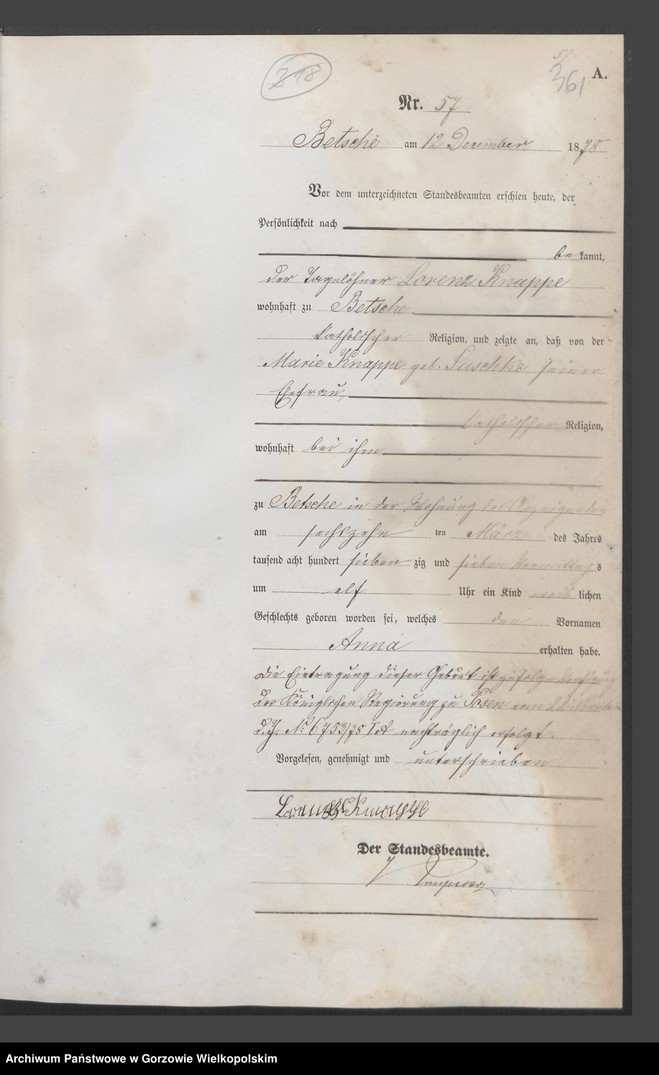 318
361 A.
Nr. 57
Betsche am 12 December 1878
Vor dem unterzeichneten Standesbeamten erschien heute, der
Persönlichkeit nach
be kannt,
der Tagelöhner Lorenz Knappe
wohnhaft zu Betsche
katholischer Religion, und zeigte an, daß von der
Marie Knappe geb. Suschke seiner
Ehefrau,
katholischer Religion,
wohnhaft bei ihm
zu Betsche in der Wohnung des Anzeigenden
am sechszehn ten März des Jahres
tausend acht hundert sieben zig und sieben Vormittag s
um elf Uhr ein Kind weib lichen
Geschlechts geboren worden sei, welches den Vornamen
Anna erhalten habe.
Die Eintragung dieser Geburt ist zufolge
der Königlichen Regierung zu Posen vom
d. J. No 6753/78 I A nachträglich erfolgt.
Vorgelesen, genehmigt und unterschrieben
Lorenz Knappe
Der Standesbeamte.
Archiwum Państwowe w Gorzowie Wielkopolskim